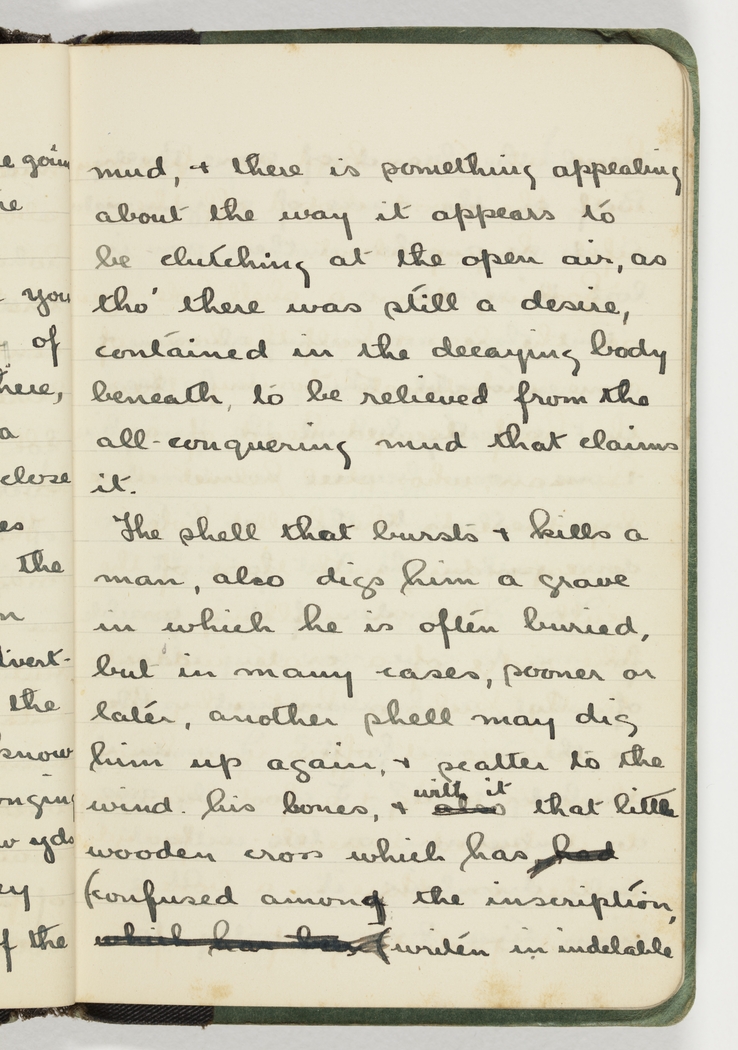 e going
re
you
of
here,
a
close
es
the
n
dvert-
the
know
onging
w yds
ey
f the
mud, + there is something appealing
about the way it appears to
be clutching at the open air, as
tho' there was still a desire,
contained in the decaying body
beneath, to be relieved from the
all-conquering mud that claims
it.
The shell that bursts + kills a
man, also digs him a grave
in which he is often buried,
but in many cases, sooner or
later, another shell may dig
him up again, + scatter to the
with it
wind. his bones, + also that little
wooden cross which has, had
(confused among the inscription,
which has been (writen in indelable